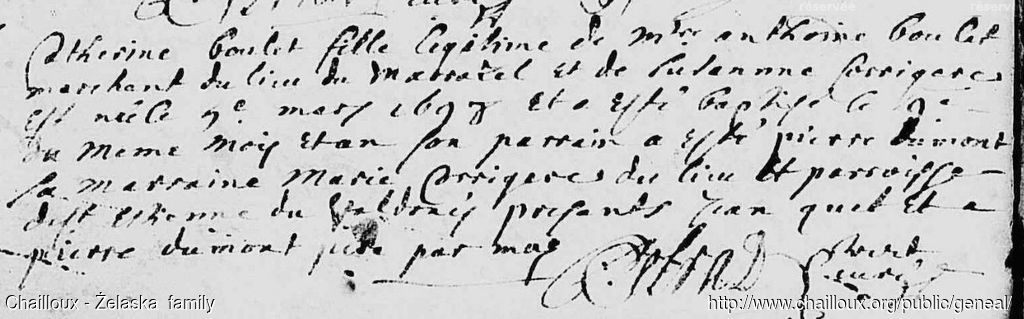 réservée
réserv
Catherine boulet fille legitime de mtre anthoine boulet
marchant du lieu du et de Susanne Corrigeres
Est née le 7e mars 1698 Et a Esté baptisé le 9e
du meme mois et an son parrain a esté pierre dumont
sa marraine Marie Corrigeres du lieu Et parroisse
de st estienne du presants Jean quet Et a
pierre dumont par moy
curé
Chailloux - Želaska family
http://www.chailloux.org/public/geneal/